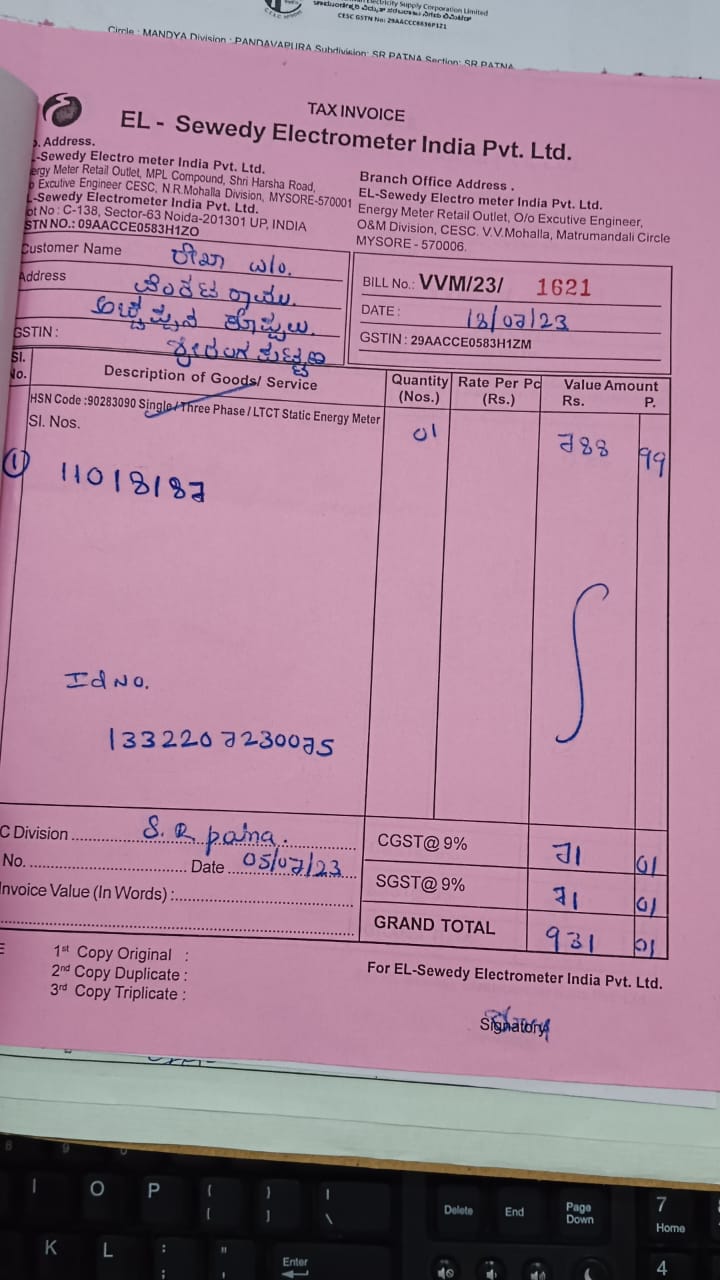 Electricity Supply Corporation Limited
CESC GSTN No: 29AACCC6636P1Z1
Circle : MANDYA Division : PANDAVAPURA Subdivision: SR PATNA Section: SR PATNA
TAX INVOICE
EL - Sewedy Electrometer India Pvt. Ltd.
. Address.
-Sewedy Electro meter India Pvt. Ltd.
ergy Meter Retail Outlet, MPL Compound, Shri Harsha Road,
Excutive Engineer CESC, N.R.Mohalla Division, MYSORE-570001
-Sewedy Electrometer India Pvt. Ltd.
ot No : C-138, Sector-63 Noida-201301 UP, INDIA
STN NO.: 09AACCE0583H1ZO
Branch Office Address .
EL-Sewedy Electro meter India Pvt. Ltd.
Energy Meter Retail Outlet, O/o Excutive Engineer,
O&M Division, CESC. V.V.Mohalla, Matrumandali Circle
MYSORE - 570006.
Customer Name W/o.
Address
GSTIN :
BILL No.: VVM/23/ 1621
DATE : 18/07/23
GSTIN : 29AACCE0583H1ZM
Sl. No. Description of Goods/ Service Quantity (Nos.) Rate Per Pc (Rs.) Value Amount Rs. P.
HSN Code :90283090 Single / Three Phase / LTCT Static Energy Meter 01 788 99
Sl. Nos.
① 11018187
Id No.
1332207230075
C Division S. R patna.
No. Date 05/07/23
Invoice Value (In Words) :
CGST@ 9% 71 01
SGST@ 9% 71 01
GRAND TOTAL 931 01
E 1st Copy Original :
2nd Copy Duplicate :
3rd Copy Triplicate :
For EL-Sewedy Electrometer India Pvt. Ltd.
Signatory
I O P { [ } ] | \ Delete End Page Down 7 Home
K L : ; " Enter 4